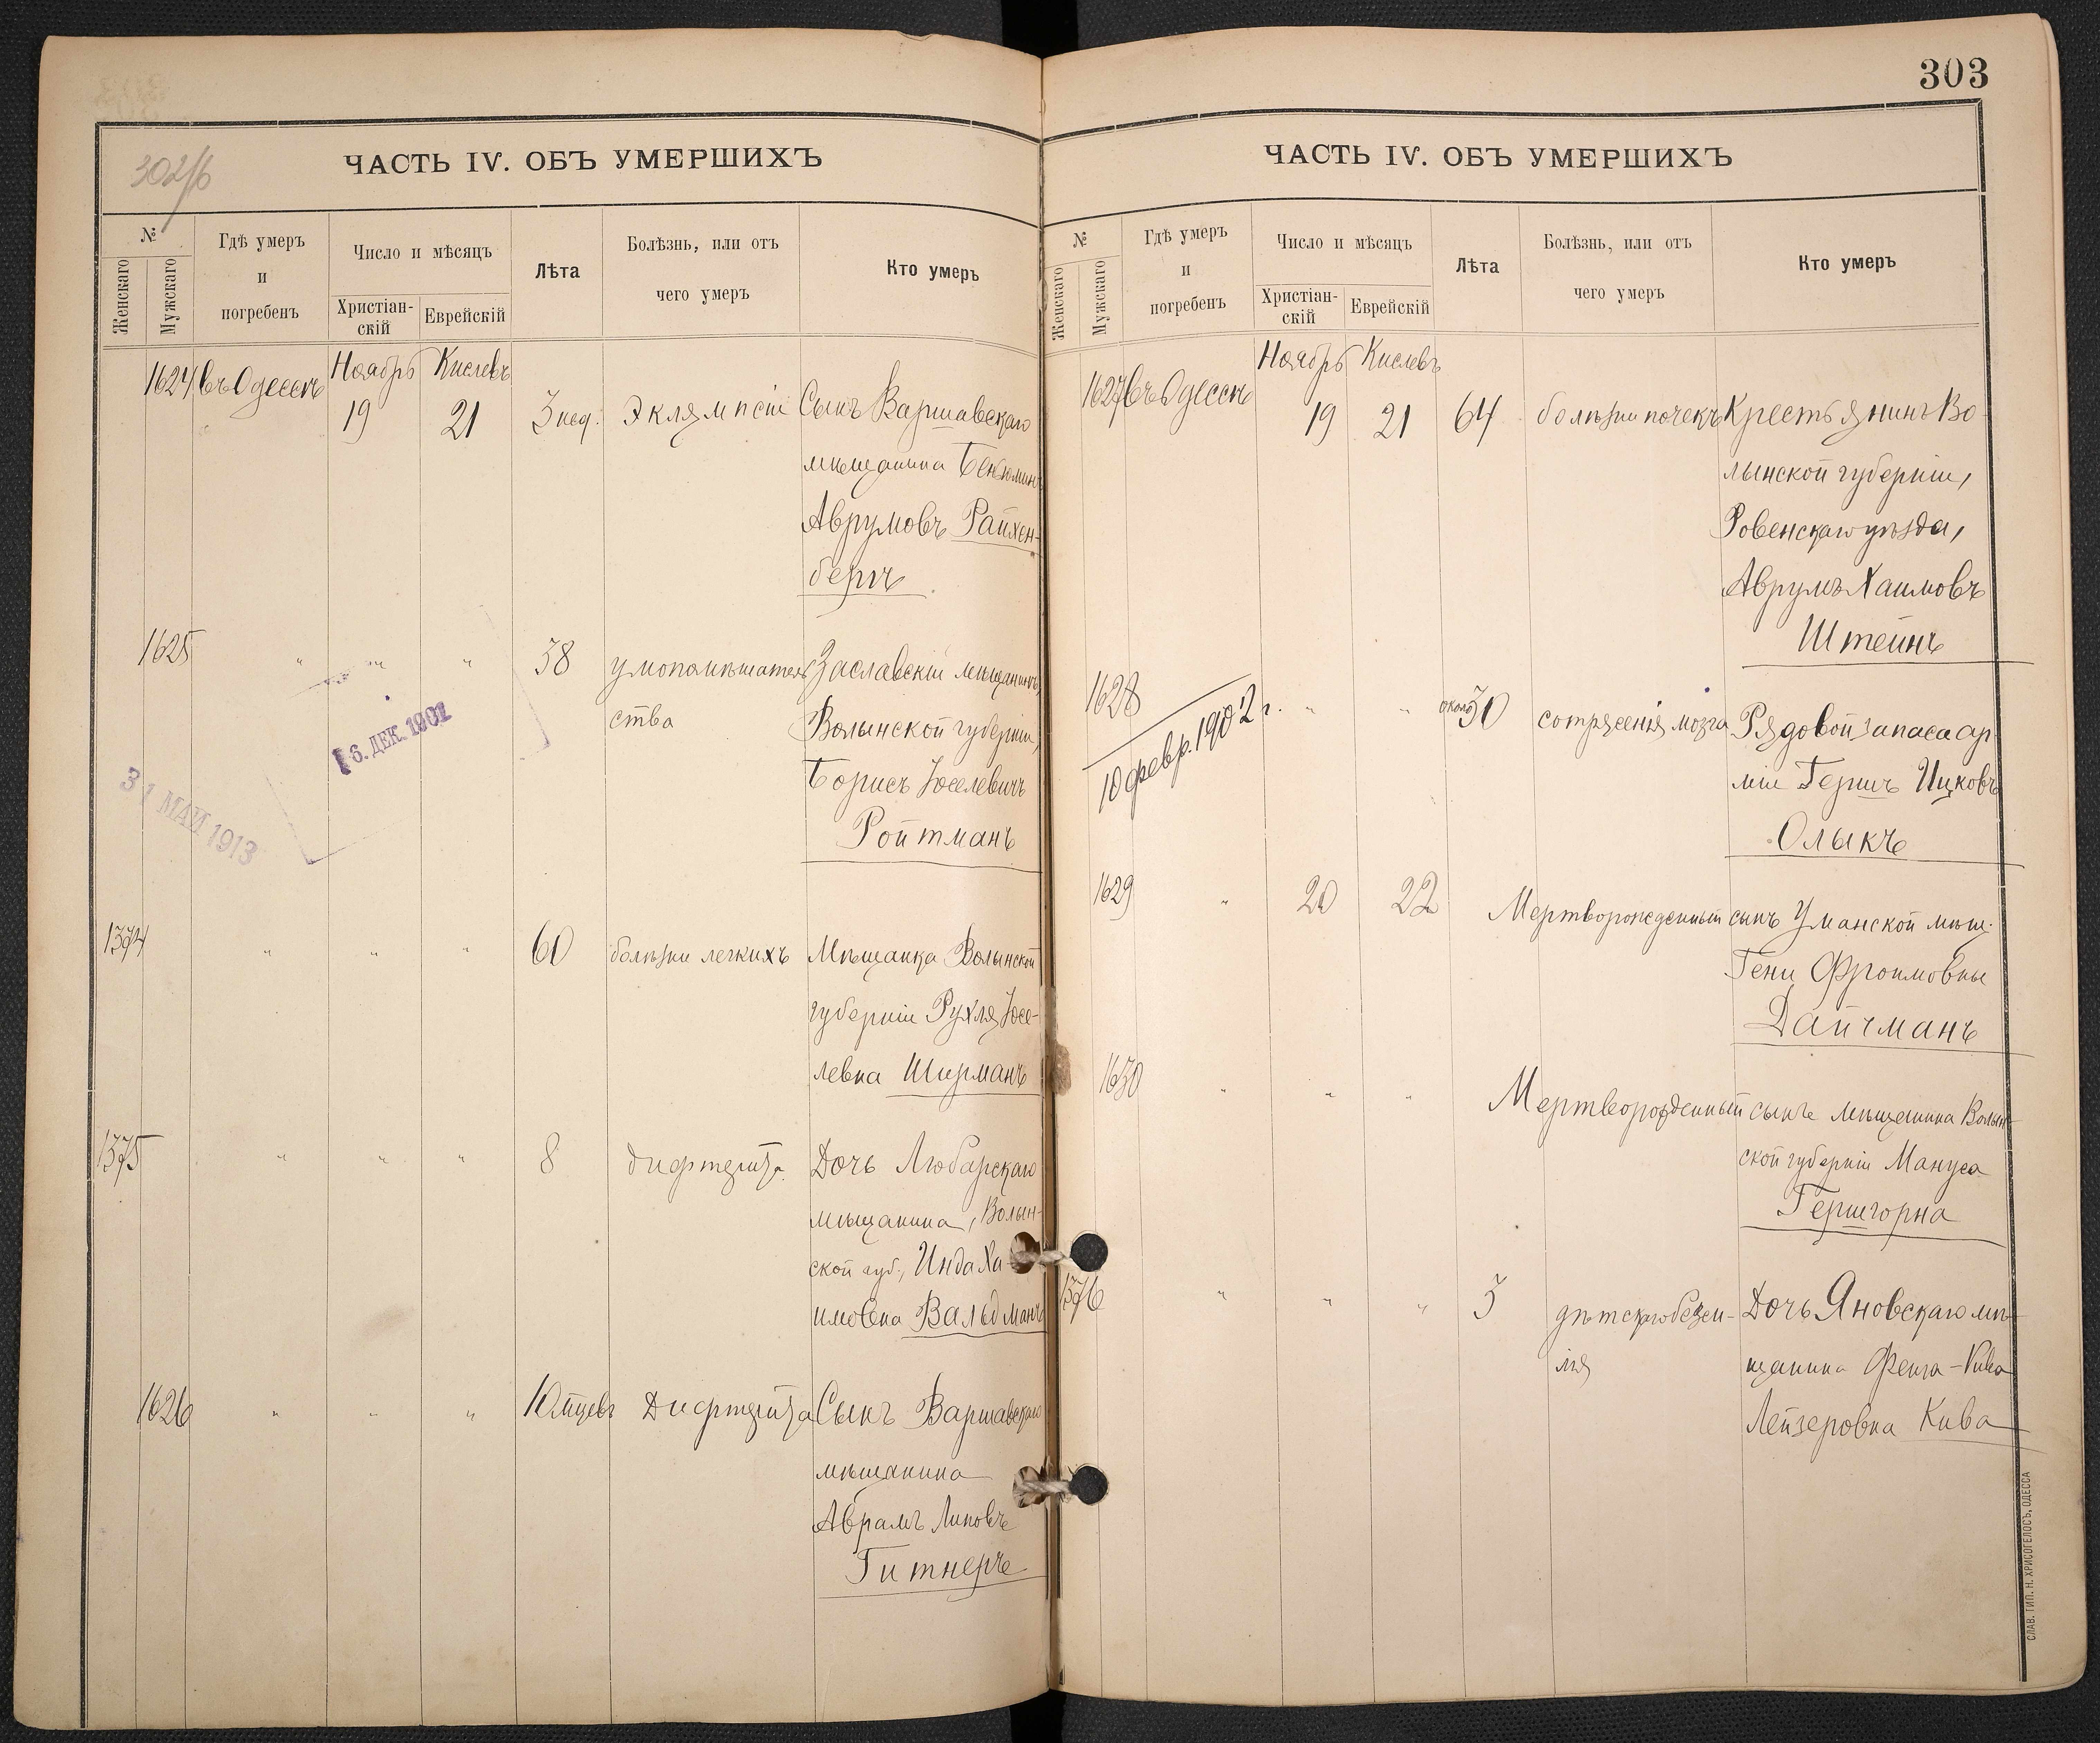 302/б
ЧАСТЬ IV. ОБЪ УМЕРШИХЪ
№
Женскаго
Мужскаго
Гдѣ умеръ
и
погребенъ
Число и мѣсяцъ
Христіан-
скій
Еврейскій
Лѣта
Болѣзнь, или отъ
чего умеръ
Кто умеръ
Ноябрь Кислевъ
1624 въ Одессѣ 19 21 3 нед. Эклямпсіи Сынъ Варшавскаго
мѣщанина Беньюминъ
Аврумовъ Райхен-
бергъ
1625 " " " 38 умопомѣшатель Заславскій мѣщанинъ,
ства Волынской губерніи,
Борисъ Іоселевичъ
Ройтманъ
16. ДЕК. 1901
31 МАЙ 1913
1374 " " " 60 болѣзни легкихъ Мѣщанка Волынской
губерніи Рухля Іосе-
левна Ширманъ
1375 " " " 8 дифтерита Дочь Любарскаго
мѣщанина, Волын-
ской губ., Инда Ха-
имовна Вальдманъ
1626 " " " 10 мѣсцевъ Дифтерита Сынъ Варшавскаго
мѣщанина
Абрамъ Липовъ
Гитнеръ
303
ЧАСТЬ IV. ОБЪ УМЕРШИХЪ
№
Женскаго
Мужскаго
Гдѣ умеръ
и
погребенъ
Число и мѣсяцъ
Христіан-
скій
Еврейскій
Лѣта
Болѣзнь, или отъ
чего умеръ
Кто умеръ
Ноябрь Кислевъ
1627 въ Одессѣ 19 21 64 болѣзни почекъ Крестьянинъ Во-
лынской губерніи,
Ровенскаго уѣзда,
Аврумъ Хаимовъ
Штейнъ
1628 " " около 30 сотрясенія мозга Рядовой запаса ар-
міи Гершъ Ицковъ
Олыкъ
10 февр. 1902 г.
1629 " 20 22 Мертворожденный сынъ Уманской мѣщ.
Гени Фроимовны
Дайчманъ
1630 " " " Мертворожденный сынъ мѣщанина Волын-
ской губерніи Мануса
Гершгорна
1376 " " " 3 дѣтскаго безси- Дочь Яновскаго мѣ-
лія щанина Фейга-Рива
Лейзеровна Кива
СЛАВ. ТИП. Н. ХРИСОГЕЛОСЪ, ОДЕССА